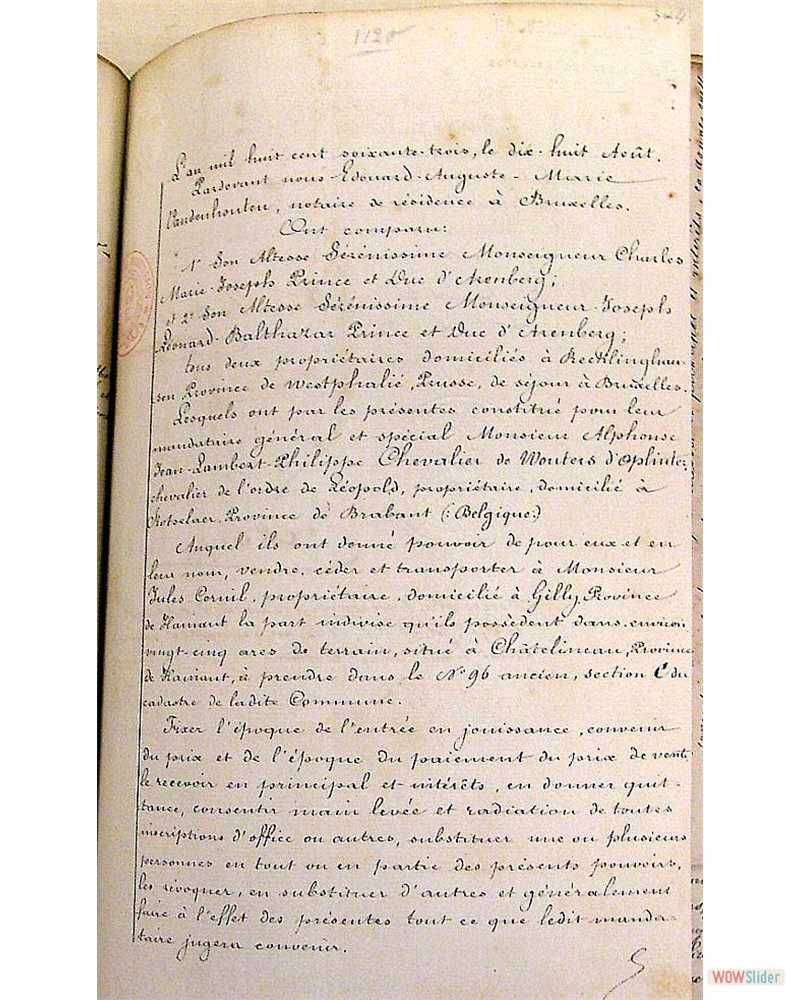 1120
L'an mil huit cent soixante-trois, le dix-huit Août.
Pardevant nous Edouard-Auguste-Marie
Vandenhouten, notaire de résidence à Bruxelles.
Ont comparu:
1° Son Altesse Sérénissime Monseigneur Charles
Marie-Joseph Prince et Duc d'Arenberg;
et 2° Son Altesse Sérénissime Monseigneur Joseph
Léonard-Balthazar Prince et Duc d'Arenberg;
tous deux propriétaires domiciliés à Recklinghau-
sen Province de Westphalie, Prusse, de séjour à Bruxelles.
Lesquels ont par les présentes constitué pour leur
mandataire général et spécial Monsieur Alphonse
Jean-Lambert-Philippe Chevalier de Wouters d'Oplinter
chevalier de l'ordre de Léopold, propriétaire, domicilié à
Rotselaer, Province de Brabant (:Belgique:)
Auquel ils ont donné pouvoir de pour eux et en
leur nom, vendre, céder et transporter à Monsieur
Jules Cornil, propriétaire, domicilié à Gilly Province
de Hainaut la part indivise qu'ils possèdent dans environ
vingt-cinq ares de terrain, situé à Châtelineau, Province
de Hainaut, à prendre dans le N° 96 ancien, section C du
cadastre de ladite Commune.
Fixer l'époque de l'entrée en jouissance, convenir
du prix et de l'époque du paiement du prix de vente,
le recevoir en principal et intérêts, en donner quit-
tance, consentir main levée et radiation de toutes
inscriptions d'office ou autres, substituer une ou plusieurs
personnes en tout ou en partie des présents pouvoirs,
les révoquer, en substituer d'autres et généralement
faire à l'effet des présentes tout ce que ledit manda-
taire jugera convenir.
WOWSlider